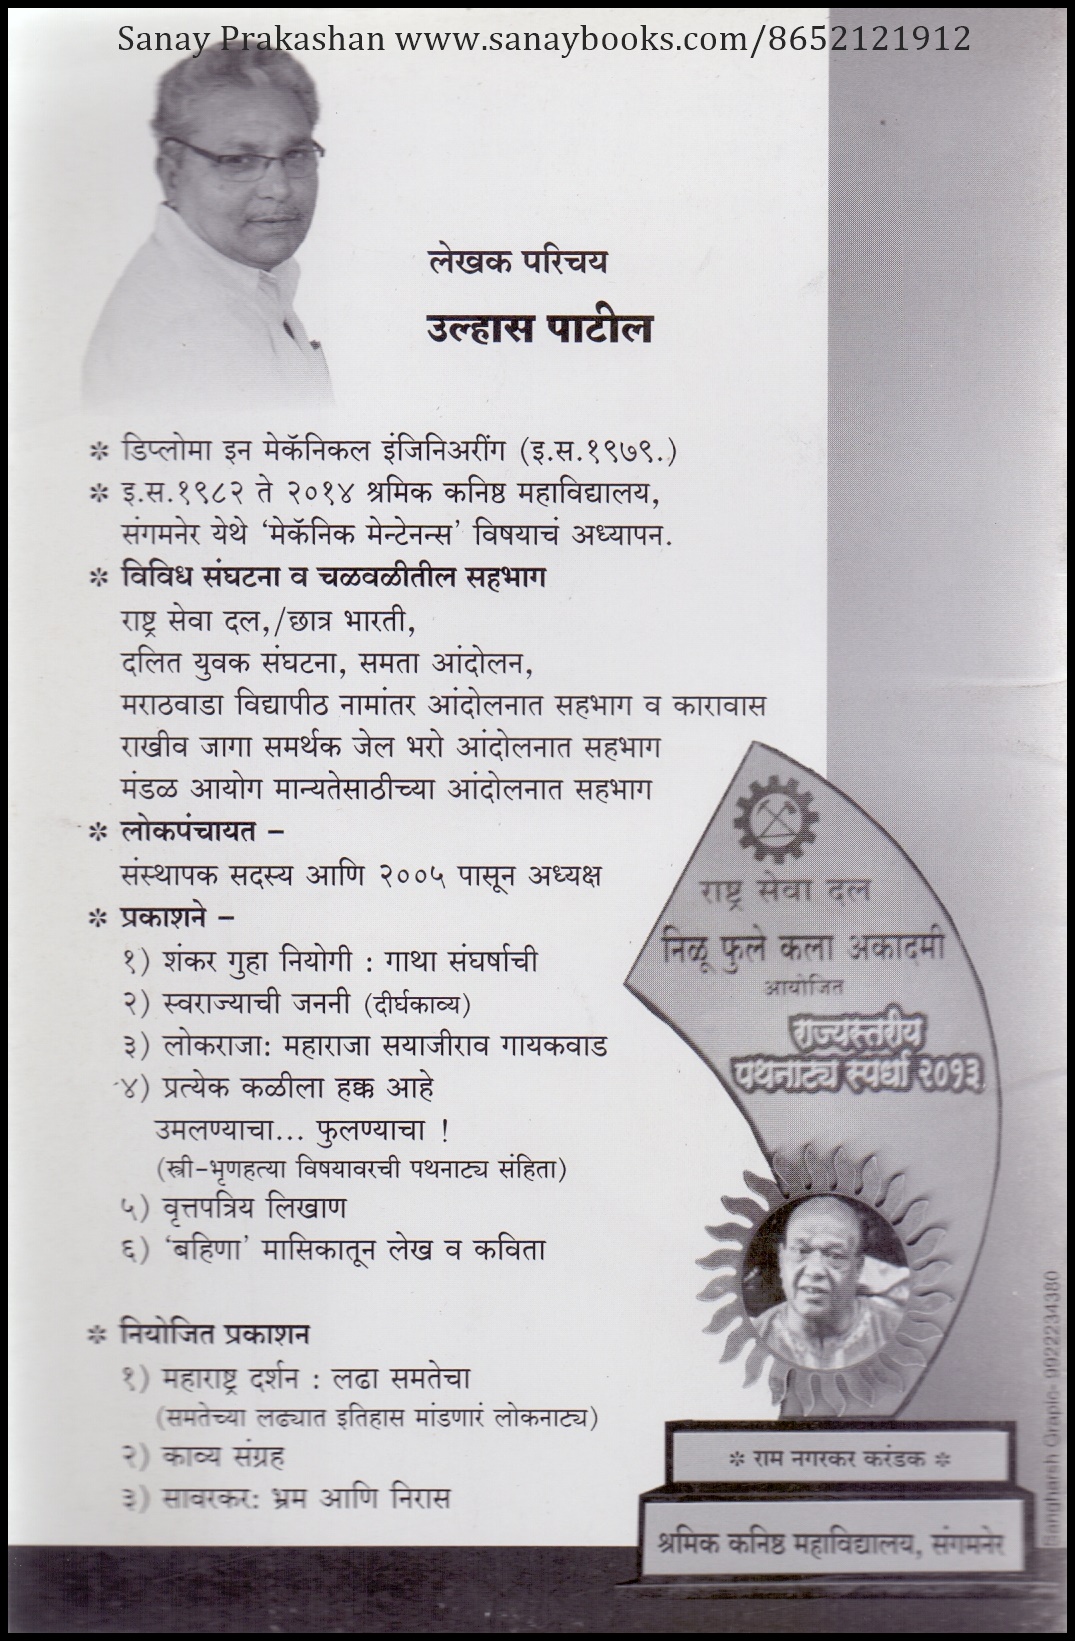 Sanay Prakashan www.sanaybooks.com/8652121912
लेखक परिचय
उल्हास पाटील
* डिप्लोमा इन मेकॅनिकल इंजिनिअरींग (इ.स.१९७९.)
* इ.स.१९८२ ते २०१४ श्रमिक कनिष्ठ महाविद्यालय,
संगमनेर येथे ‘मेकॅनिक मेन्टेनन्स’ विषयाचं अध्यापन.
* विविध संघटना व चळवळीतील सहभाग
राष्ट्र सेवा दल,/छात्र भारती,
दलित युवक संघटना, समता आंदोलन,
मराठवाडा विद्यापीठ नामांतर आंदोलनात सहभाग व कारावास
राखीव जागा समर्थक जेल भरो आंदोलनात सहभाग
मंडळ आयोग मान्यतेसाठीच्या आंदोलनात सहभाग
* लोकपंचायत –
संस्थापक सदस्य आणि २००५ पासून अध्यक्ष
* प्रकाशने –
१) शंकर गुहा नियोगी : गाथा संघर्षाची
२) स्वराज्याची जननी (दीर्घकाव्य)
३) लोकराजा: महाराजा सयाजीराव गायकवाड
४) प्रत्येक कळीला हक्क आहे
उमलण्याचा... फुलण्याचा !
(स्त्री-भृणहत्या विषयावरची पथनाट्य संहिता)
५) वृत्तपत्रिय लिखाण
६) ‘बहिणा’ मासिकातून लेख व कविता
* नियोजित प्रकाशन
१) महाराष्ट्र दर्शन : लढा समतेचा
(समतेच्या लढ्यात इतिहास मांडणारं लोकनाट्य)
२) काव्य संग्रह
३) सावरकर: भ्रम आणि निरास
राष्ट्र सेवा दल
निळू फुले कला अकादमी
आयोजित
राज्यस्तरीय
पथनाट्य स्पर्धा २०१३
* राम नगरकर करंडक *
श्रमिक कनिष्ठ महाविद्यालय, संगमनेर
Sangharsh Grapic- 9922234380